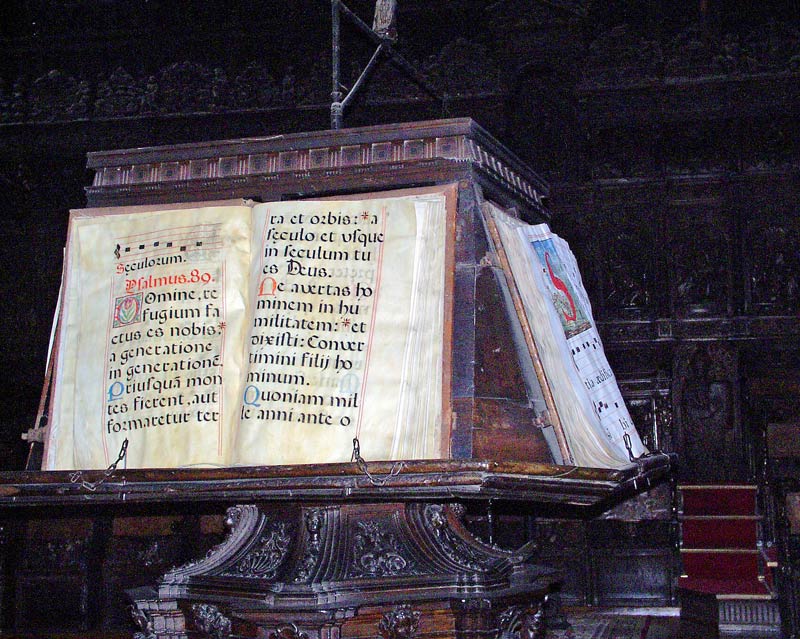 Sęculorum.
Psalmus.89.
Domine, re
fugium fa
ctus es nobis*
a generatione
in generationē.
Priusquā mon
tes fierent, aut
formaretur ter
ra et orbis: *a
sęculo et vsque
in sęculum tu
es Deus.
Ne avertas ho
minem in hu
militatem: *et
dixisti: Conver
timini filij ho
minum.
Quoniam mil
le anni ante o